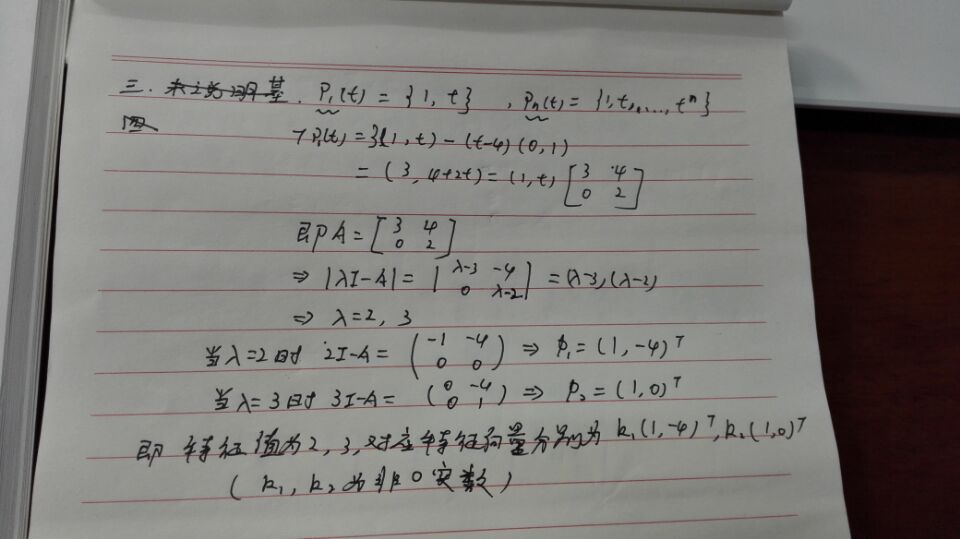 三. P₁(t) = {1, t} , Pₙ(t) = {1, t, ..., tⁿ}
TP₁(t) = 3(1, t) - (t-4)(0, 1)
= (3, 4+2t) = (1, t) [3 4; 0 2]
即 A = [3 4; 0 2]
⇒ |λI-A| = |λ-3 -4; 0 λ-2| = (λ-3)(λ-2)
⇒ λ=2, 3
当λ=2时 2I-A = (-1 -4; 0 0) ⇒ P₁ = (1, -4)ᵀ
当λ=3时 3I-A = (0 -4; 0 1) ⇒ P₂ = (1, 0)ᵀ
即 特征值为2, 3, 对应特征向量分别为 k₁(1, -4)ᵀ, k₂(1, 0)ᵀ
( k₁, k₂ 为非0实数 )